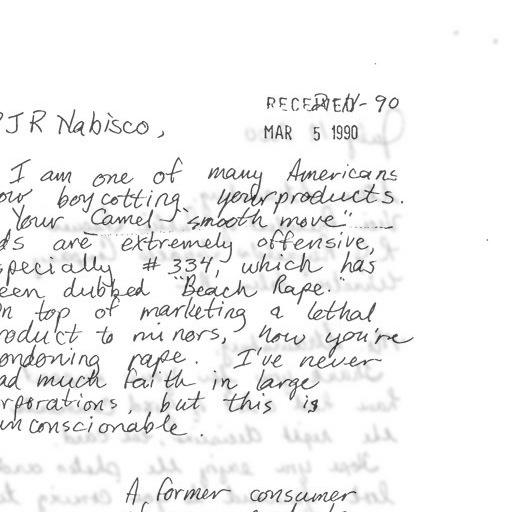 RECEIVED - 90
RJR Nabisco,
MAR 5 1990
I am one of many Americans
now boycotting your products.
Your Camel "smooth move"
ads are extremely offensive,
especially #334, which has
been dubbed "Beach Rape."
On top of marketing a lethal
product to minors, now you're
condoning rape. I've never
had much faith in large
corporations, but this is
unconscionable.
A former consumer